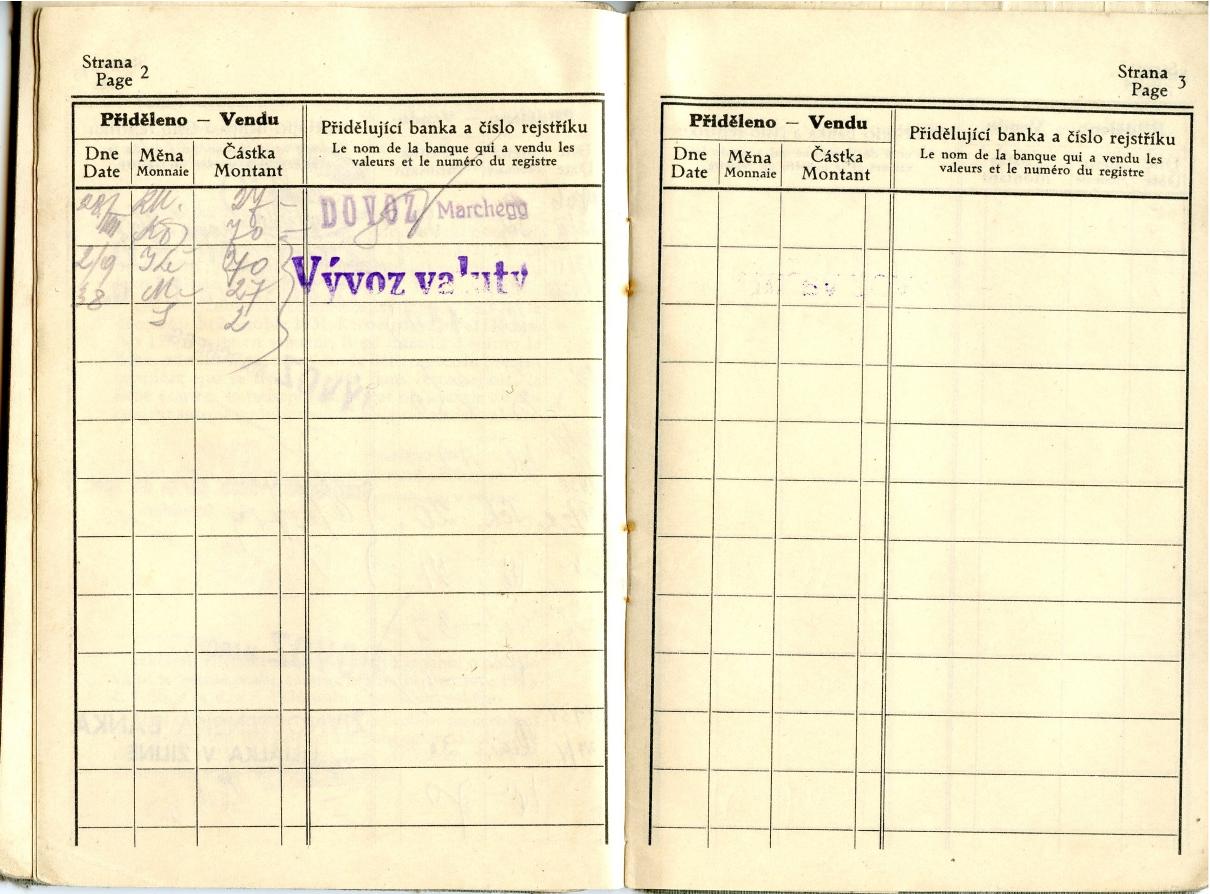 Strana
Page 2
Přiděleno — Vendu
Přidělující banka a číslo rejstříku
Le nom de la banque qui a vendu les
valeurs et le numéro du registre
Dne
Date
Měna
Monnaie
Částka
Montant
27 —
DOVOZ Marchegg
70 —
2/9 Kč 70
Vývoz valuty
38 M 27
S 2
Strana
Page 3
Přiděleno — Vendu
Přidělující banka a číslo rejstříku
Le nom de la banque qui a vendu les
valeurs et le numéro du registre
Dne
Date
Měna
Monnaie
Částka
Montant